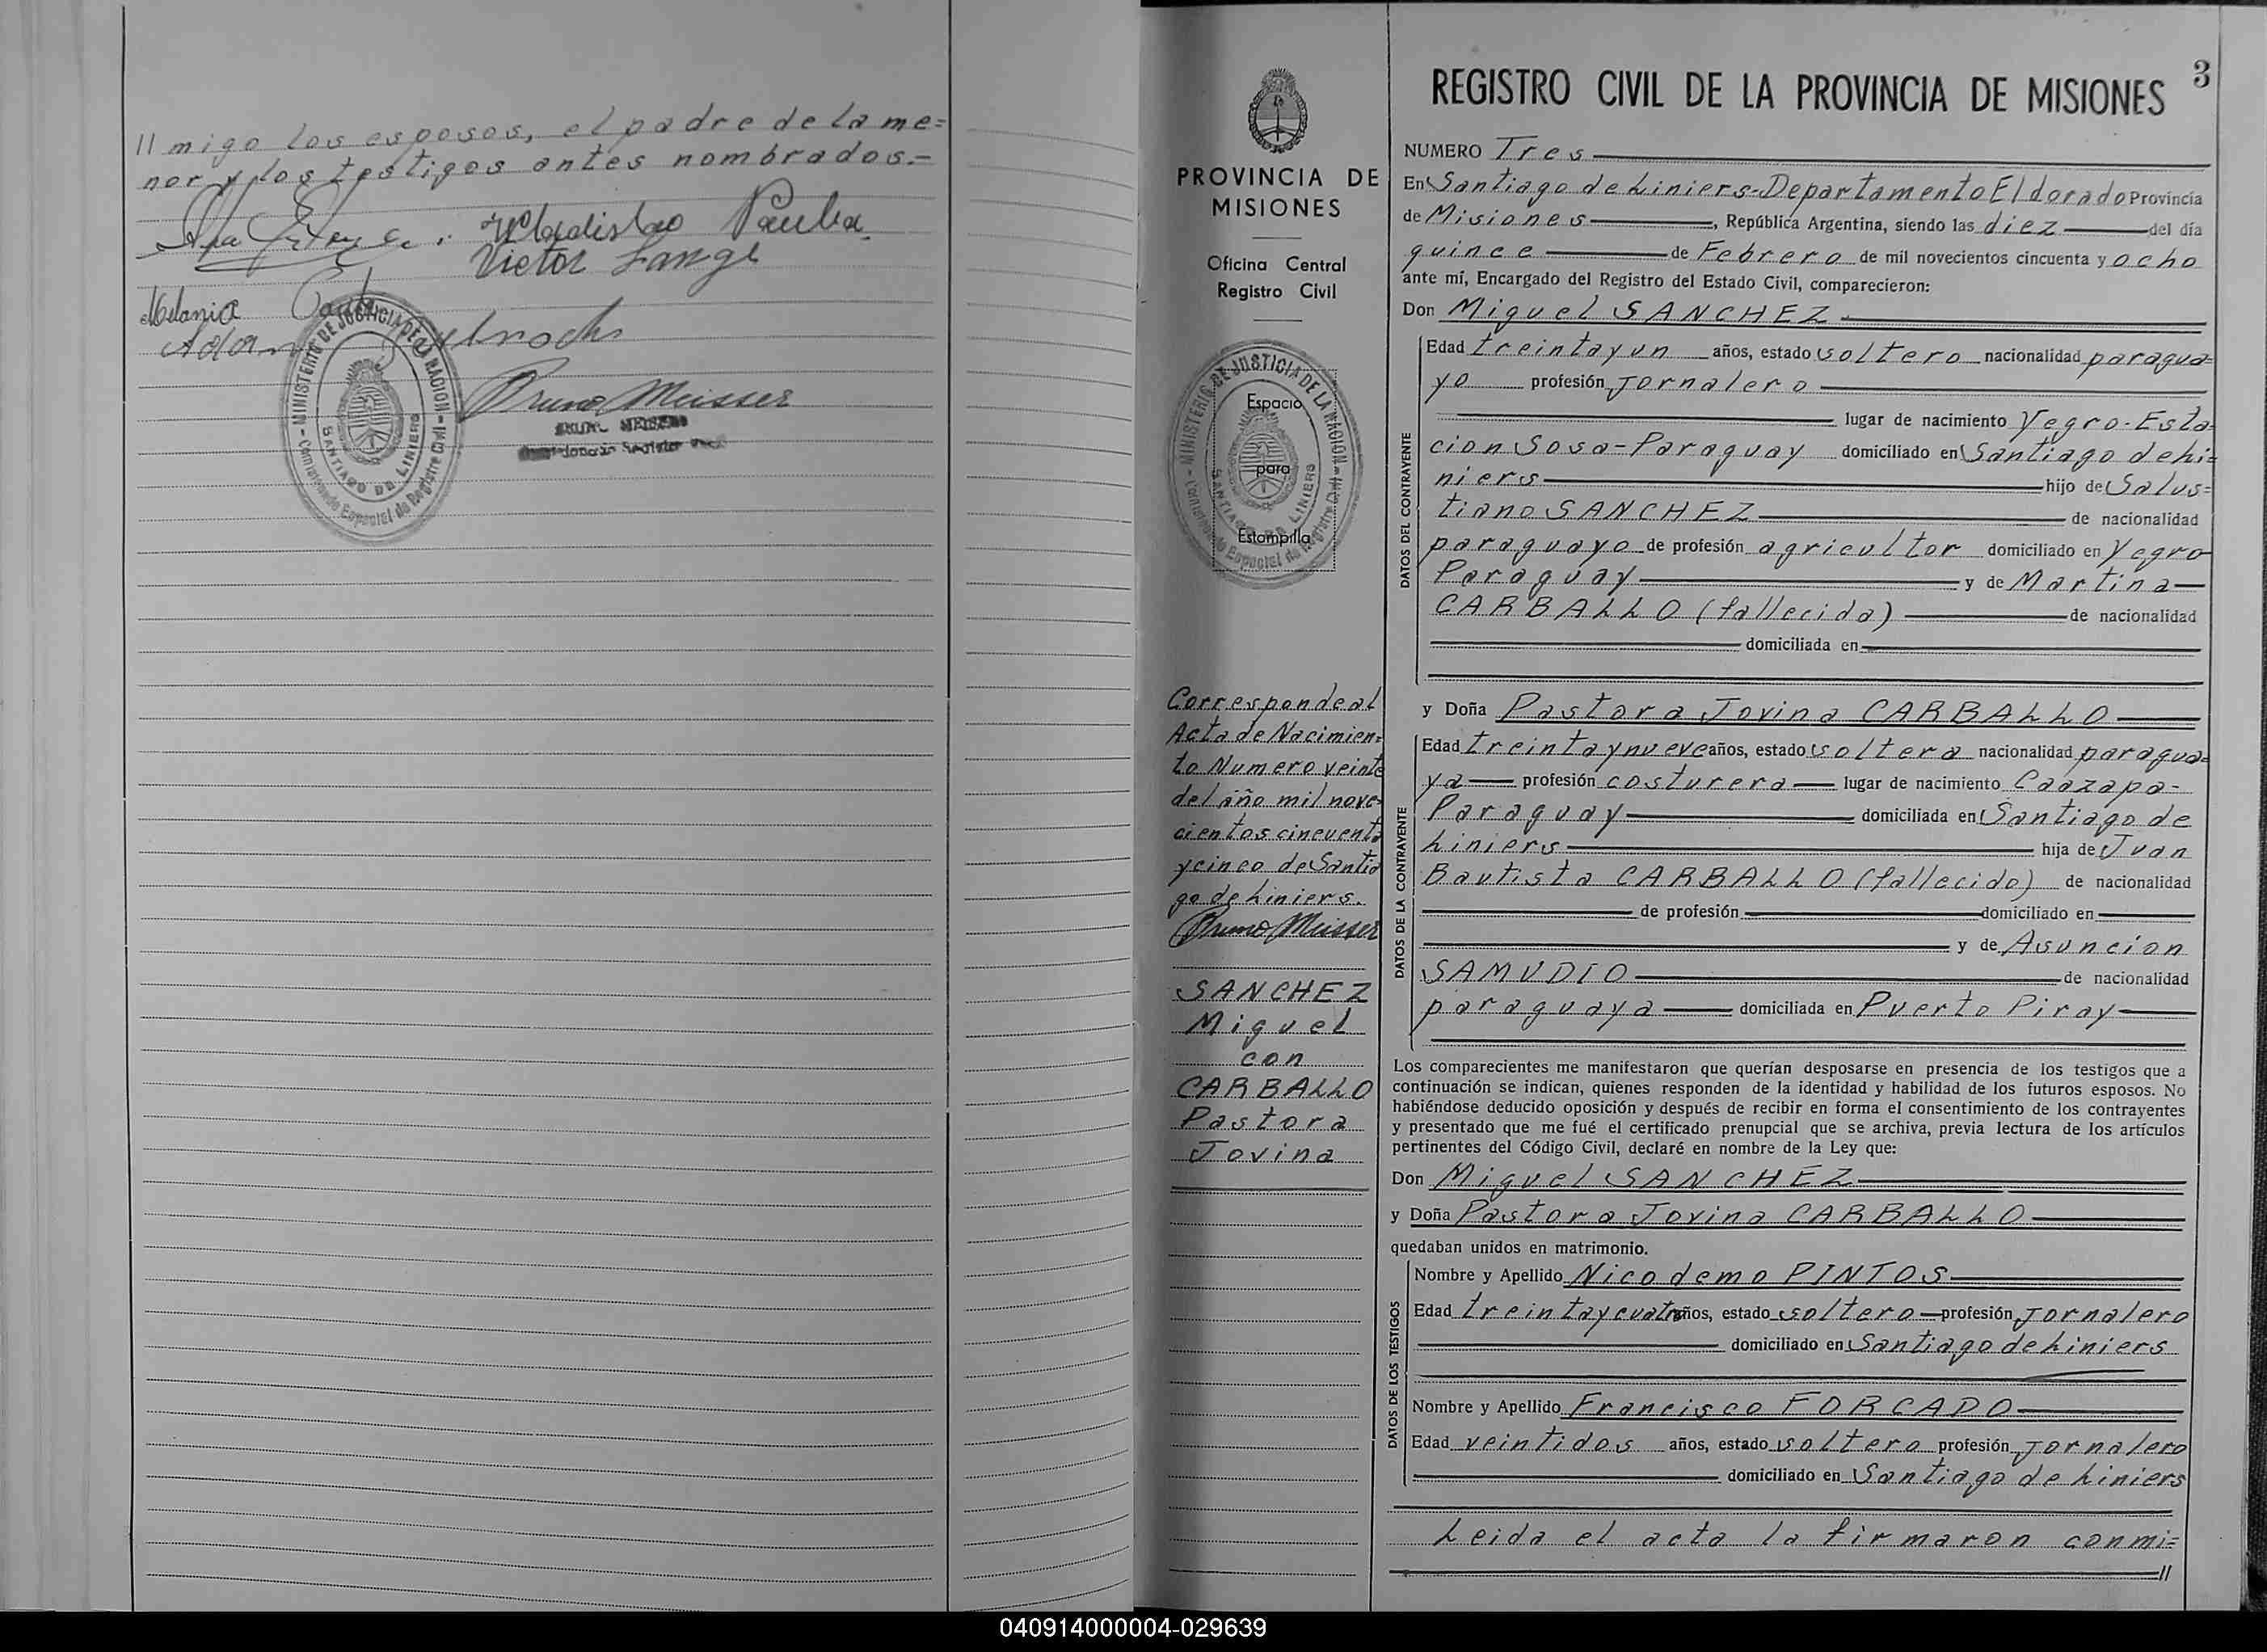 // migo los esposos, el padre de la me=
nor y los testigos antes nombrados.-
Victor Lange
Melania
Adan
MINISTERIO DE JUSTICIA DE LA NACION
SANTIAGO DE LINIERS
Comisionado Especial de Registro Civil
Bruno Meisser
PROVINCIA DE
MISIONES
Oficina Central
Registro Civil
MINISTERIO DE JUSTICIA DE LA NACION
SANTIAGO DE LINIERS
Comisionado Especial de Registro Civil
Espacio
para
Estampilla
Corresponde al
Acta de Nacimien=
to Numero veinte
del año mil nove=
cientos cincuenta
y cinco de Santia
go de Liniers.
Bruno Meisser
SANCHEZ
Miguel
con
CARBALLO
Pastora
Jovina
3
REGISTRO CIVIL DE LA PROVINCIA DE MISIONES
NUMERO Tres
En Santiago de Liniers-Departamento Eldorado Provincia
de Misiones, República Argentina, siendo las diez del día
quince de Febrero de mil novecientos cincuenta y ocho
ante mí, Encargado del Registro del Estado Civil, comparecieron:
Don Miguel SANCHEZ
DATOS DEL CONTRAYENTE
Edad treinta y un años, estado soltero nacionalidad paragua=
yo profesión Jornalero
lugar de nacimiento Yegro-Esta
cion Sosa-Paraguay domiciliado en Santiago de Li=
niers hijo de Salus=
tiano SANCHEZ de nacionalidad
paraguayo de profesión agricultor domiciliado en Yegro
Paraguay y de Martina
CARBALLO (fallecida) de nacionalidad
domiciliada en
y Doña Pastora Jovina CARBALLO
DATOS DE LA CONTRAYENTE
Edad treinta y nueve años, estado soltera nacionalidad paragua=
ya profesión costurera lugar de nacimiento Caazapa-
Paraguay domiciliada en Santiago de
Liniers hija de Juan
Bautista CARBALLO (fallecido) de nacionalidad
de profesión domiciliado en
y de Asuncion
SAMUDIO de nacionalidad
paraguaya domiciliada en Puerto Piray
Los comparecientes me manifestaron que querían desposarse en presencia de los testigos que a
continuación se indican, quienes responden de la identidad y habilidad de los futuros esposos. No
habiéndose deducido oposición y después de recibir en forma el consentimiento de los contrayentes
y presentado que me fué el certificado prenupcial que se archiva, previa lectura de los artículos
pertinentes del Código Civil, declaré en nombre de la Ley que:
Don Miguel SANCHEZ
y Doña Pastora Jovina CARBALLO
quedaban unidos en matrimonio.
DATOS DE LOS TESTIGOS
Nombre y Apellido Nicodemo PINTOS
Edad treinta y cuatro años, estado soltero profesión Jornalero
domiciliado en Santiago de Liniers
Nombre y Apellido Francisco FORCADO
Edad veintidos años, estado soltero profesión Jornalero
domiciliado en Santiago de Liniers
Leida el acta la firmaron conmi=
//
040914000004-029639